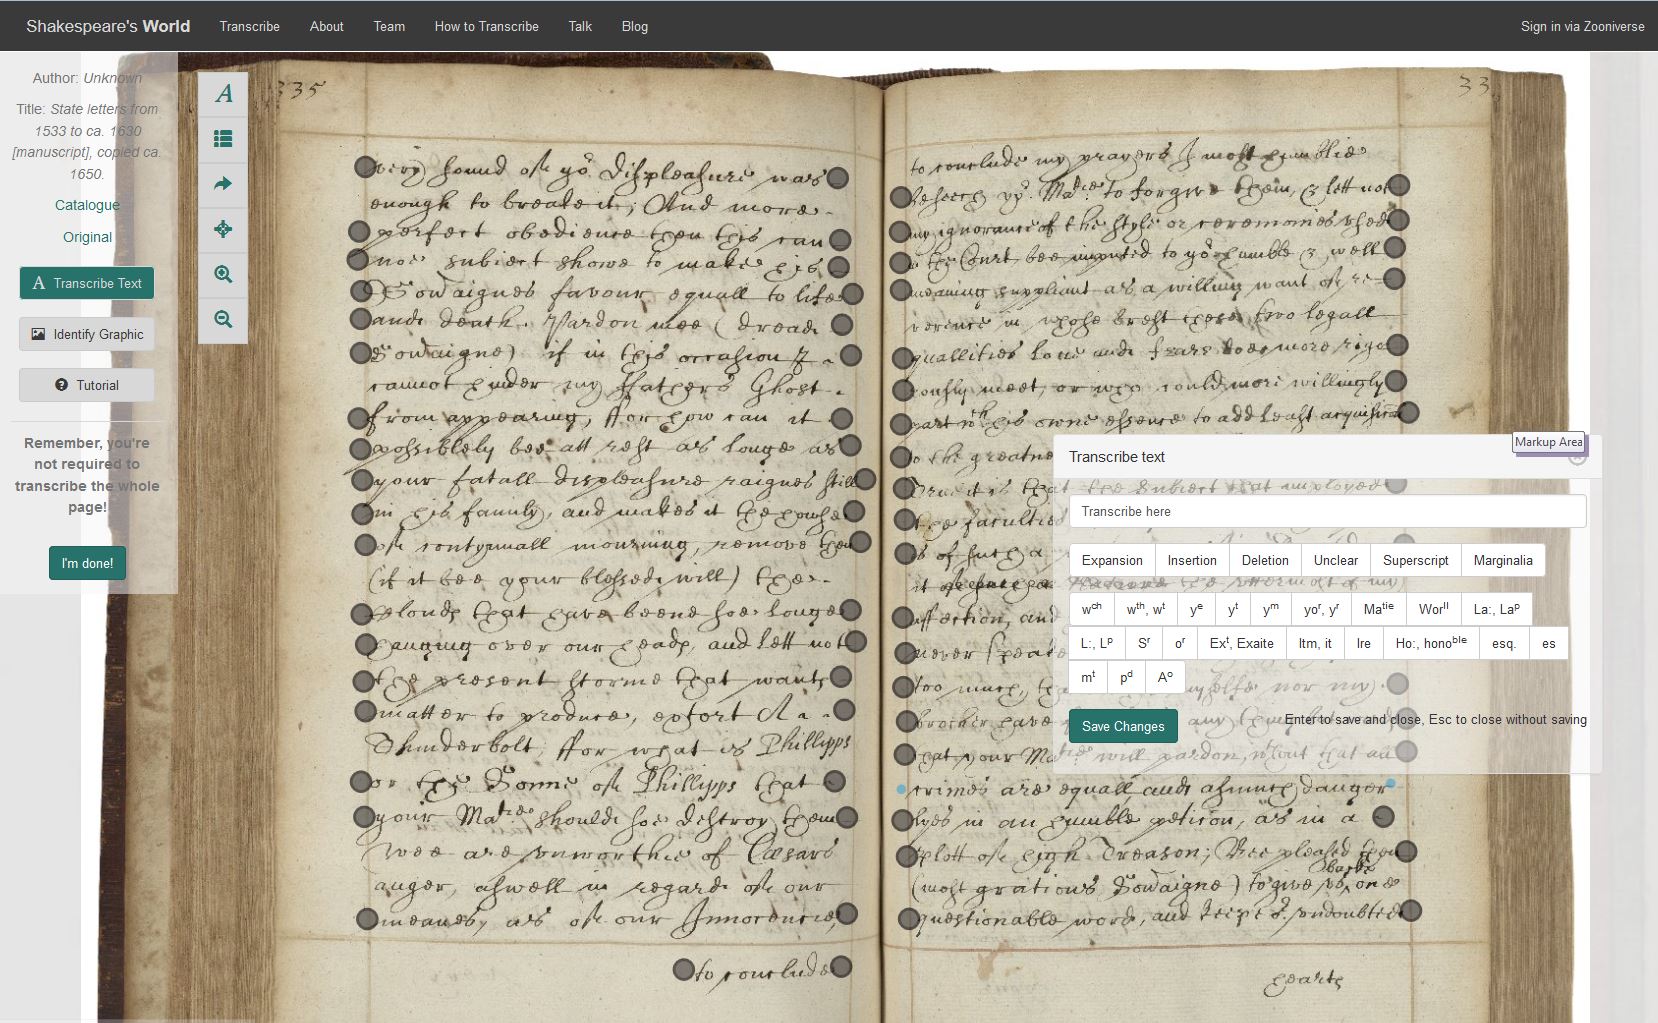 Shakespeare's World
Transcribe
About
Team
How to Transcribe
Talk
Blog
Sign in via Zooniverse
Author: Unknown
Title: State letters from
1533 to ca. 1630
[manuscript], copied ca.
1650.
Catalogue
Original
A Transcribe Text
Identify Graphic
Tutorial
Remember, you're
not required to
transcribe the whole
page!
I'm done!
A
335
very sound of yor Displeasure was
enough to breake it; And more
perfect obedience then this can
noe subiect showe to make his
Soūaignes favour equall to life
and death. Pardon mee (dread
Soūaigne) if in this occasion I
cannot hinder my ffathers Ghost
from appearing, ffor how can it
possiblely bee att rest as longe as
your fatall displeasure raignes still
in his family, and makes it the howse
of contynuall mourning, remove then
(if it bee your blessed will) the
Clouds that have beene soe longe
hanging over our heads, and lett not
the present storme that wants
matter to produce, extort A
Thunderbolt, ffor what is Phillipps
or the Sonne of Phillipps that
your Matie should soe destroy them
Wee are unworthie of Cæsars
anger, aswell in regard of our
meanes, as of our Innocencie,
to conclude
33
to conclude my prayers I most humblie
beseech yor Matie to forgive them, & lett not
my ignorance of the style or ceremonies used
in the Court bee imputed to yor humble & well
meaning suppliant as a willing want of re-
verence in whose brest these two legall
quallities Love and feare doe more rigo
rously meet, or who could more willingly
part wth his owne essence to add least
to the greatne
True it is that the Subiect that imployed
the faculties
is of such a
it
affection, and
never speake
too much, nor my
brother have any
that your Matie will pardon, wthout that all
crimes are equall, and asmuch danger
lyes in an humble peticon, as in a
plott of high Treason; Bee pleased then
(most gratious Soūaigne) to give us, one
questionable word, and undoubted
hearts
Markup Area
Transcribe text
Transcribe here
Expansion
Insertion
Deletion
Unclear
Superscript
Marginalia
wch
wth, wt
ye
yt
ym
yor, yr
Matie
Worll
La:, Lap
L:, Lp
Sr
or
Ext, Exaite
Itm, it
lre
Ho:, honoble
esq.
es
mt
pd
Ao
Save Changes
Enter to save and close, Esc to close without saving